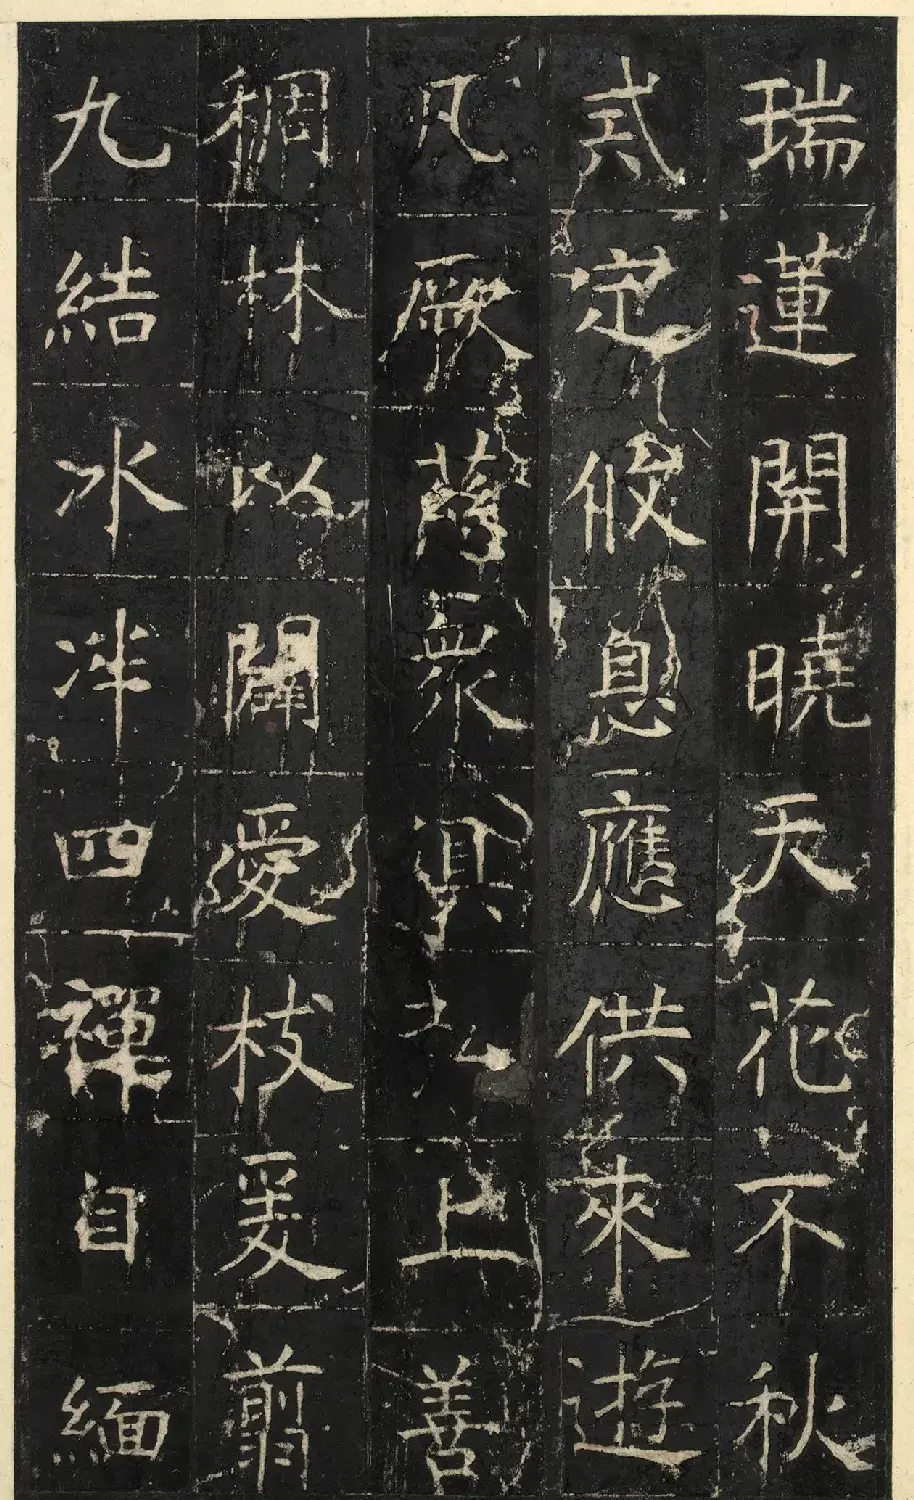 瑞蓮開曉天花不秋
貳定攸息應供來遊
凡厥蔭衆俱弘上善
稠林以闢愛枝爰翦
九結冰泮四禪自緬